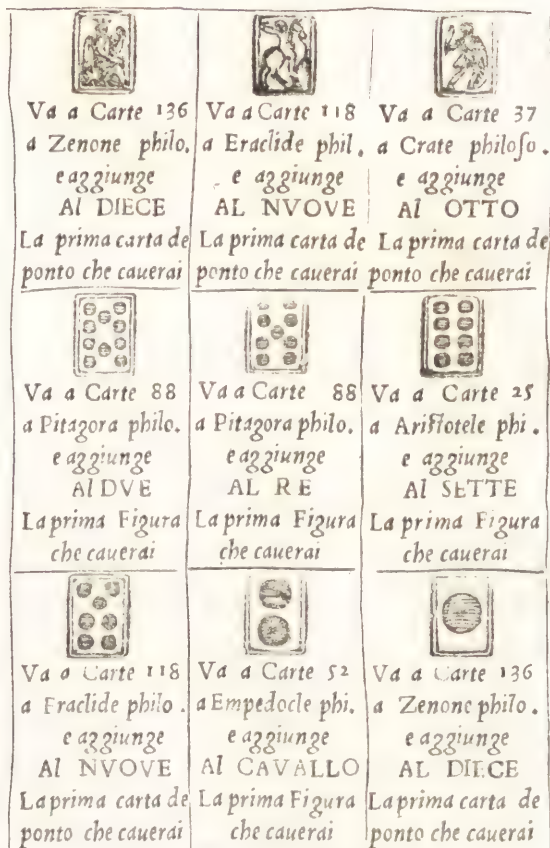 Va a Carte 136
a Zenone philo.
e aggiunge
Al DIECE
La prima carta de
ponto che cauerai
Va a Carte 118
a Eraclide phil.
e aggiunge
AL NVOVE
La prima carta de
ponto che cauerai
Va a Carte 37
a Crate philoſo.
e aggiunge
Al OTTO
La prima carta de
ponto che cauerai
Va a Carte 88
a Pitagora philo.
e aggiunge
Al DVE
La prima Figura
che cauerai
Va a Carte 88
a Pitagora philo.
e aggiunge
AL RE
La prima Figura
che cauerai
Va a Carte 25
a Ariſtotele phi.
e aggiunge
Al SETTE
La prima Figura
che cauerai
Va a Carte 118
a Eraclide philo.
e aggiunge
Al NVOVE
La prima carta de
ponto che cauerai
Va a Carte 52
a Empedocle phi.
e aggiunge
Al CAVALLO
La prima Figura
che cauerai
Va a Carte 136
a Zenone philo.
e aggiunge
AL DIECE
La prima carta de
ponto che cauerai